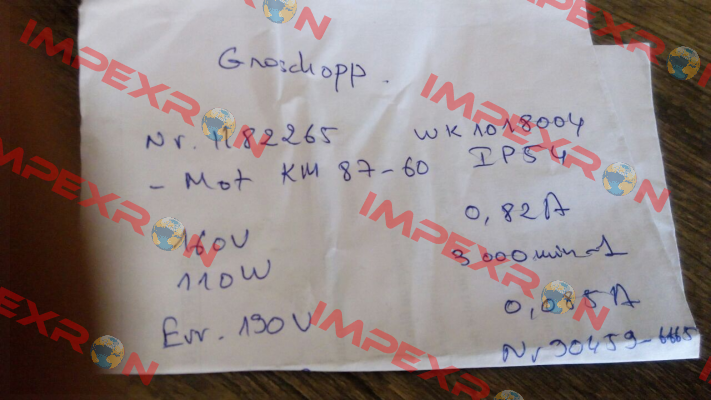 Groschopp.
Nr. 1182265 WK1018004
- Mot KM 87-60 IP54
160V 0,82A
110W 3000min-1
Err. 190V 0,085A
Nr90459-6665
IMPEXRON
IMPEXRON
IMPEXRON
IMPEXRON
IMPEXRON
IMPEXRON
IMPEXRON